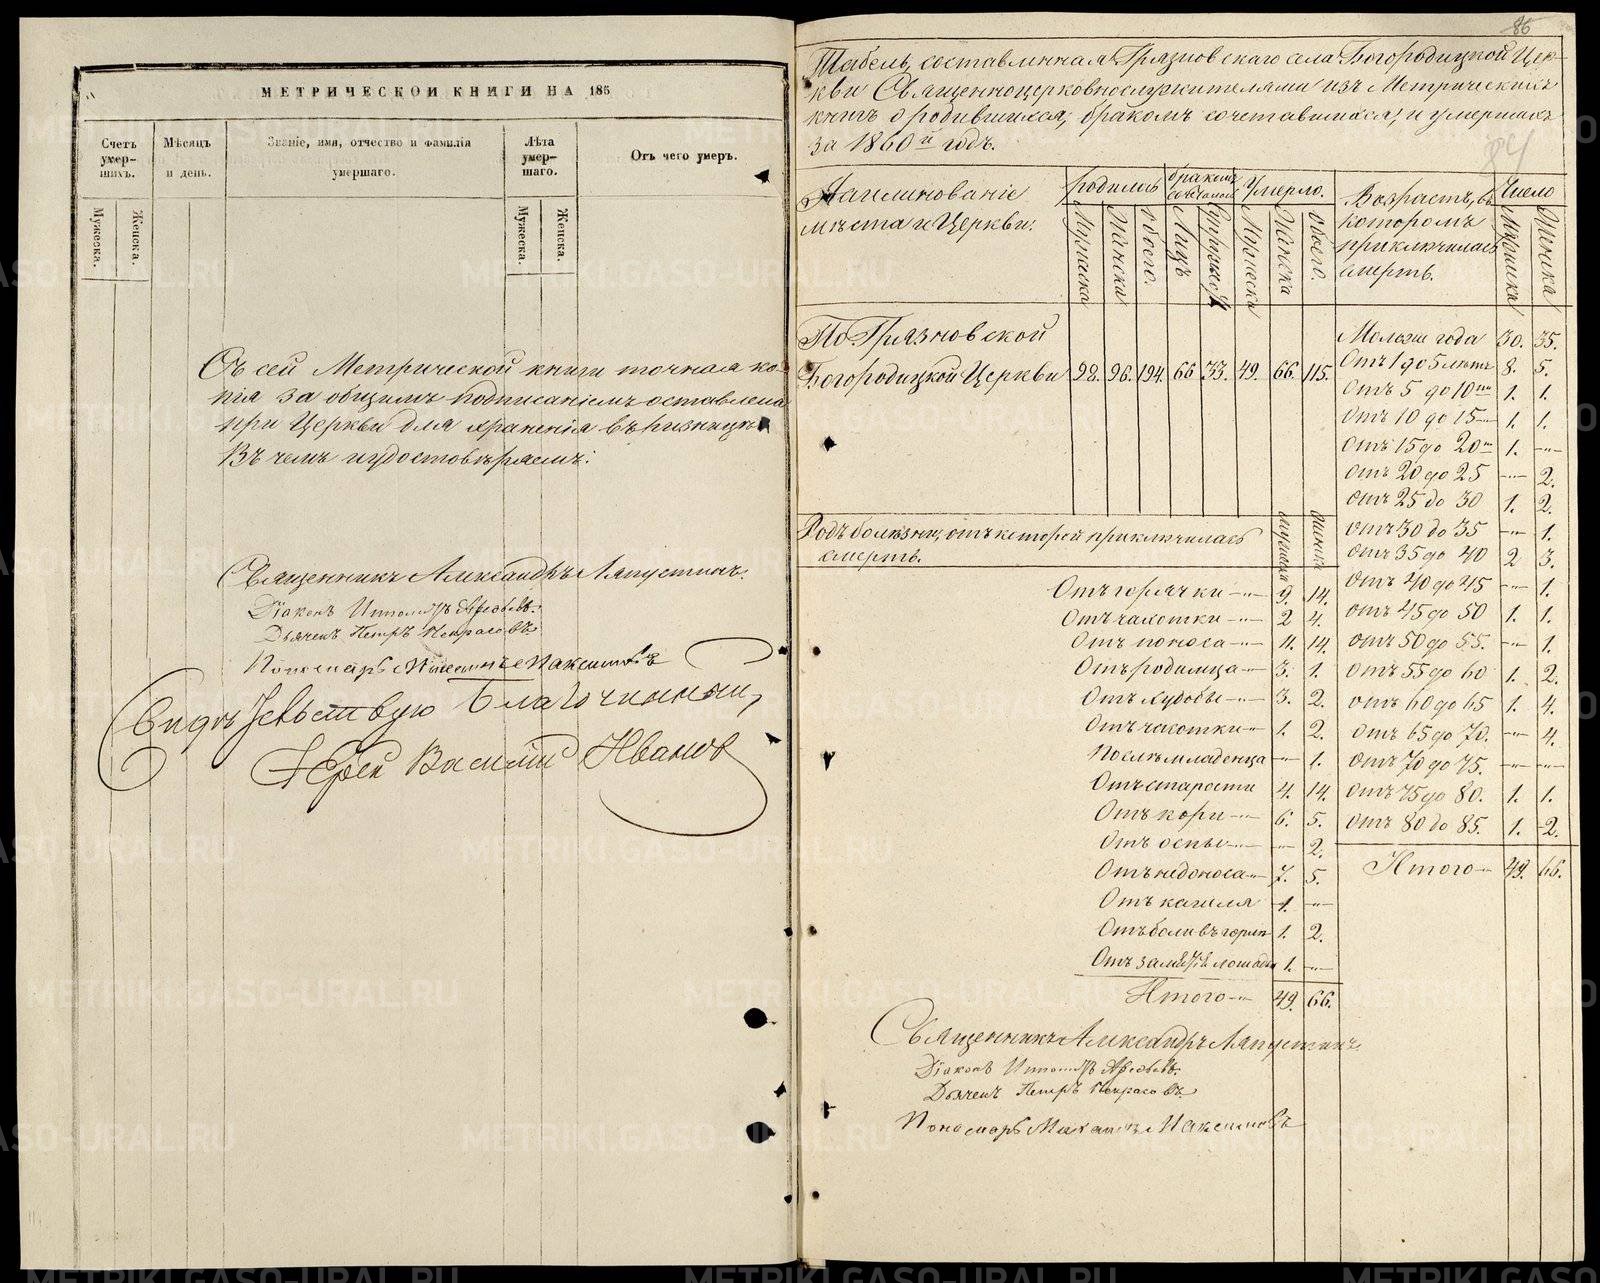 МЕТРИЧЕСКОЙ КНИГИ НА 185
Счетъ умерших. Мѣсяцъ и день. Званіе, имя, отчество и фамилія умершаго. Лѣта умершаго. Отъ чего умеръ.
Мужеска. Женска. Мужеска. Женска.
Съ сей Метрической книги точная ко-
пія за общимъ подписаніемъ оставлена
при Церкви для храненія въ ризницѣ
въ чемъ и удостовѣряемъ:
Священникъ Александръ Ляпустинъ.
Діаконъ
Дьячекъ Петръ Некрасовъ
Пономарь Максимовъ
Свидѣтельствую Благочинный,
Іерей Василій Ивановъ
86
Табель, составленная Грязновскаго села Богородицкой Цер-
кви Священноцерковнослужителями изъ Метрическихъ
книгъ о родившихся, бракомъ сочетавшихся, и умершихъ
за 1860й годъ.
84
Наименованіе мѣста и Церкви. родилось бракомъ Умерло. Возрастъ, въ которомъ приключилась смерть. Число
Мужеска Женска Обоего. Лицъ Мужеска Женска Обоего. Мужеска Женска
По Грязновской
Богородицкой Церкви 98. 96. 194. 66 33. 49. 66. 115.
Моложе года 30. 35.
Отъ 1 до 5 лѣтъ 8. 5.
Отъ 5 до 10ти 1. 1.
Отъ 10 до 15 1. 1.
Отъ 15 до 20ти 1. —
Отъ 20 до 25 — 2.
Отъ 25 до 30 1. 2.
Отъ 30 до 35 — 1.
Отъ 35 до 40 2 3.
Отъ 40 до 45 — 1.
Отъ 45 до 50 1. 1.
Отъ 50 до 55. — 1.
Отъ 55 до 60 1. 2.
Отъ 60 до 65 1. 4.
Отъ 65 до 70. — 4.
Отъ 70 до 75. — —
Отъ 75 до 80. 1. 1.
Отъ 80 до 85. 1. 2.
Итого 49. 66.
Родъ болѣзни, отъ которой приключилась
смерть.
Отъ горячки 9. 14.
Отъ чахотки 2 4.
Отъ поноса 11. 14.
Отъ родимца 3. 1.
Отъ худобы 3. 2.
Отъ чахотки 1. 2.
Послѣ младенца — 1.
Отъ старости 4. 14.
Отъ кори 6. 5.
Отъ оспы — 2.
Отъ недоноса 7. 5.
Отъ кашля 1. —
Отъ боли въ горлѣ 1. 2.
Отъ лошади 1. —
Итого 49. 66.
Священникъ Александръ Ляпустинъ
Діаконъ
Дьячекъ Петръ Некрасовъ
Пономарь Максимовъ
METRIKI.GASO-URAL.RU